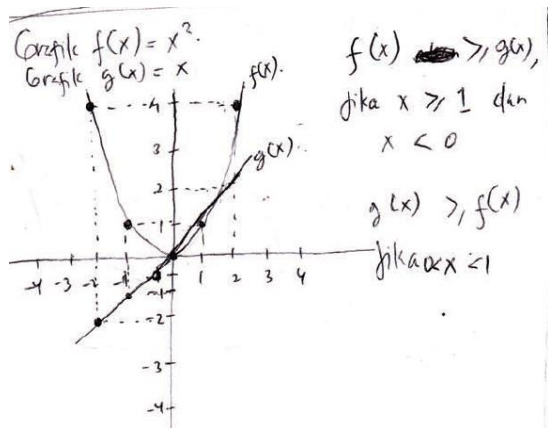 Grafik f(x) = x².
Grafik g(x) = x
f(x).
g(x).
4
3
2
1
-4 -3 -2 -1 1 2 3 4
-1
-2
-3
-4
f(x) ≥ g(x),
jika x ≥ 1 dan
x < 0
g(x) ≥ f(x)
jika 0<x<1